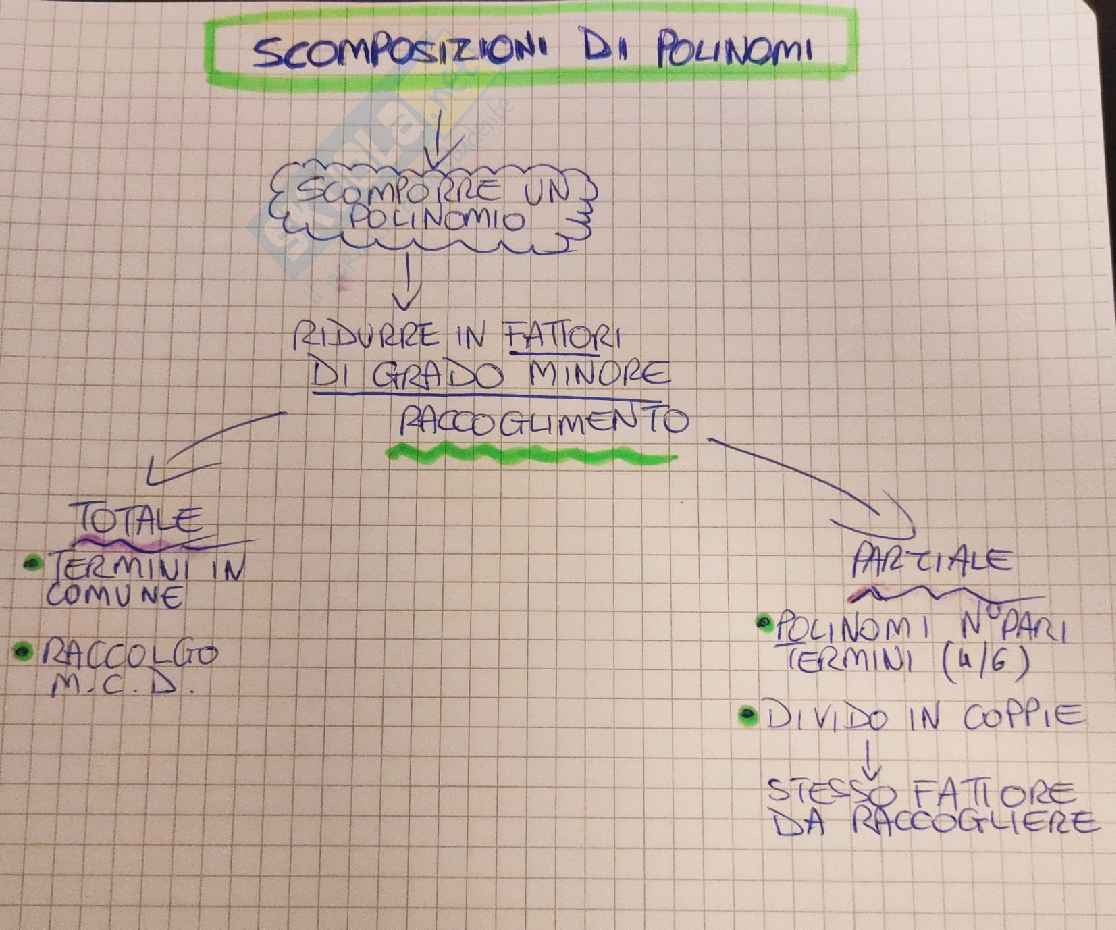 SCOMPOSIZIONI DI POLINOMI
SCOMPORRE UN
POLINOMIO
RIDURRE IN FATTORI
DI GRADO MINORE
RACCOGLIMENTO
TOTALE
TERMINI IN
COMUNE
RACCOLGO
M.C.D.
PARZIALE
POLINOMI N° PARI
TERMINI (4/6)
DIVIDO IN COPPIE
STESSO FATTORE
DA RACCOGLIERE